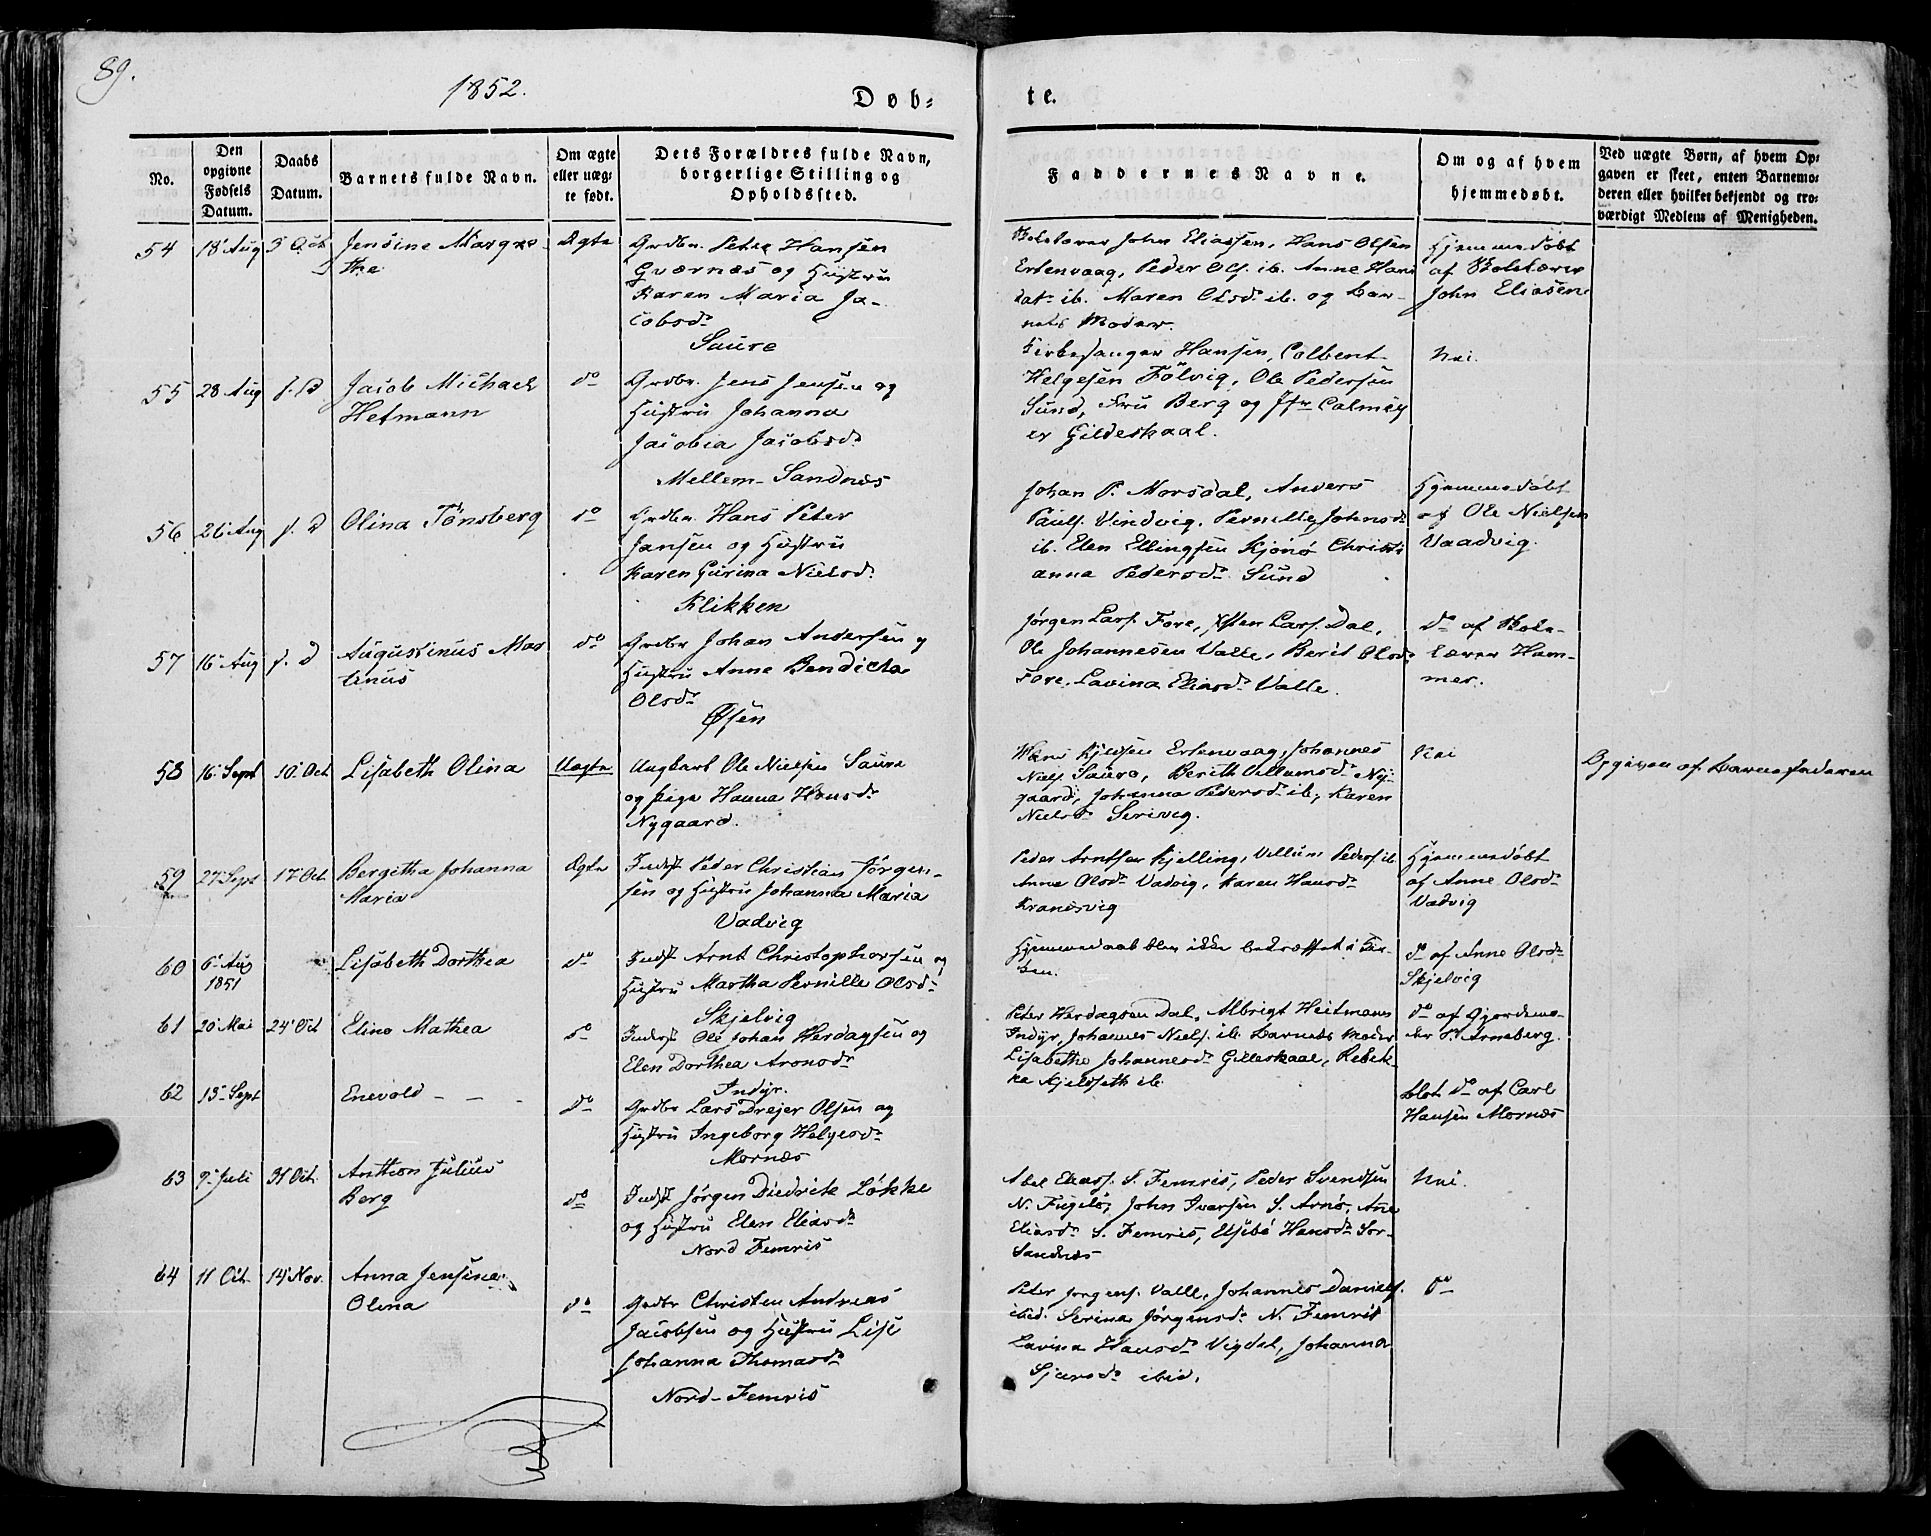 89.
1852.
Døb-
te.
No.
Den opgivne Fødsels Datum.
Daabs Datum.
Barnets fulde Navn.
Om ægte eller uægte født.
Dets Forældres fulde Navn, borgerlige Stilling og Opholdssted.
Faddernes Navne.
Om og af hvem hjemmedøbt.
Ved uægte Børn, af hvem Opgaven er skeet, enten Barnemoderen eller hvilket bekjendt og troværdigt Medlem af Menigheden.
54 18 Aug 3 Oct Jensine Margre-
the
Ægte
Grdbr. Peter Hansen
Gværnæs og Hustru
Karen Maria Ja-
cobsd.
Saura
Skolelærer John Eliassen, Hans Olsen
Ertenvaag, Peder Ols. ib. Anne Hans
dat. ib. Maren Olsd. ib. og Bar-
nets Moder.
Hjemmedøbt
af Skolelærer
John Eliasen
55 28 Aug s. D Jacob Michael
Hetmann
do
Grdbr. Jens Jensen og
Hustru Johanna
Jacobia Jacobsd.
Mellem-Sandnæs
Kirkesanger Hansen, Colbent
Helgesen Fölvig, Ole Pedersen
Sund, Fru Berg og Jfr Calmey
er Gildeskaal.
Nei.
56 26 Aug s. D Olina Tönsberg
do
Grdbr. Hans Peter
Jansen og Hustru
Karen Gurina Nielsd.
Klikken
Johan P. Morsdal, Anders
Pauls. Vindvig. Pernille Johnsd.
ib. Elen Ellingsen Kjönö Christi
anna Pedersd. Sund
Hjemmedøbt
af Ole Nielsen
Vaadvig.
57 16 Aug s. D Augustinus Mar
tinus
do
Grdbr Johan Andersen og
Hustru Anne Bendicta
Olsd.
Øsen
Jørgen Lars. Fore, Lars. Dal,
Ole Johannesen Valle, Berit Olsd.
Fore, Lavina Eliasd. Valle.
do af Skole-
lærer Ham-
mer.
58 16 Sept 10 Oct Lisabeth Olina
Uægte
Ungkarl Ole Nielsen Saura
og pige Hanna Hansd.
Nygaard.
Hans Ertenvaag, Johannes
Niels. Saura, Berith Villumsd. Ny-
gaard, Johanna Pedersd. ib., Karen
Nielsd. Serivig.
Nei
Opgiven af Barnefaderen
59 27 Sept 17 Oct Bergitha Johanna
Maria
Ægte
Inderst Peder Christian Jörgen-
sen og Hustru Johanna Maria
Vadvig
Peder Arntsen Kjelling, Villum Peders. ib.
Anne Olsd. Vadvig, Karen Hansd.
Kranesvig
Hjemmedöbt
af Anne Olsd.
Vadvig
60 6 Aug
1851
Lisabeth Dorthea
do
Inderst Arnt Christophersen og
Hustru Martha Pernille Olsd.
Skjelvig
Hjemmedaab blev ikke bekræftet i Kir-
ken.
do af Anne Olsd.
Skjelvig
61 20 Mai 24 Oct Eline Mathea
do
Inderst Ole Johan Herdagsen og
Elen Dorthea Aronsd.
Indyr.
Peter Herdagsen Dal, Albrigt Heitmann
Indyr, Johannes Niels. ib. Barnets Moder
Lisabethe Johannesd. Gilleskaal, Rebek-
ka Kjeldseth ib.
do af Gjordemo-
der P. Arneberg.
62 13 Sept Enevold - - -
do
Grdbr Lars Drejer Olsen og
Hustru Ingeborg Helgesd.
Mornæs
blot do af Carl
Hansen Mornæs
63 9 Juli 31 Oct. Anthon Julius
Berg
do
Inderst Jørgen Diedrik Løkke
og Hustru Elen Eliasd.
Nord Femris
Abel Elias. S. Femris, Peder Svendsen
N. Fugelö, John Ivarsen S. Arnö, Ane
Eliasd. S. Femris, Elsebe Hansd. Sør-
Sandnæs
Nei.
64 11 Oct. 14 Nov. Anna Jensine
Olina
do
Grdbr Christen Andreas
Jacobsen og Hustru Lise
Johanna Thomasd.
Nord-Femris
Peter Jørgens. Valle, Johannes Daniels.
ibid. Serina Jørgensd. N. Femris
Lavina Hansd. Vigdel, Johanna
Sjursd. ibid.
do